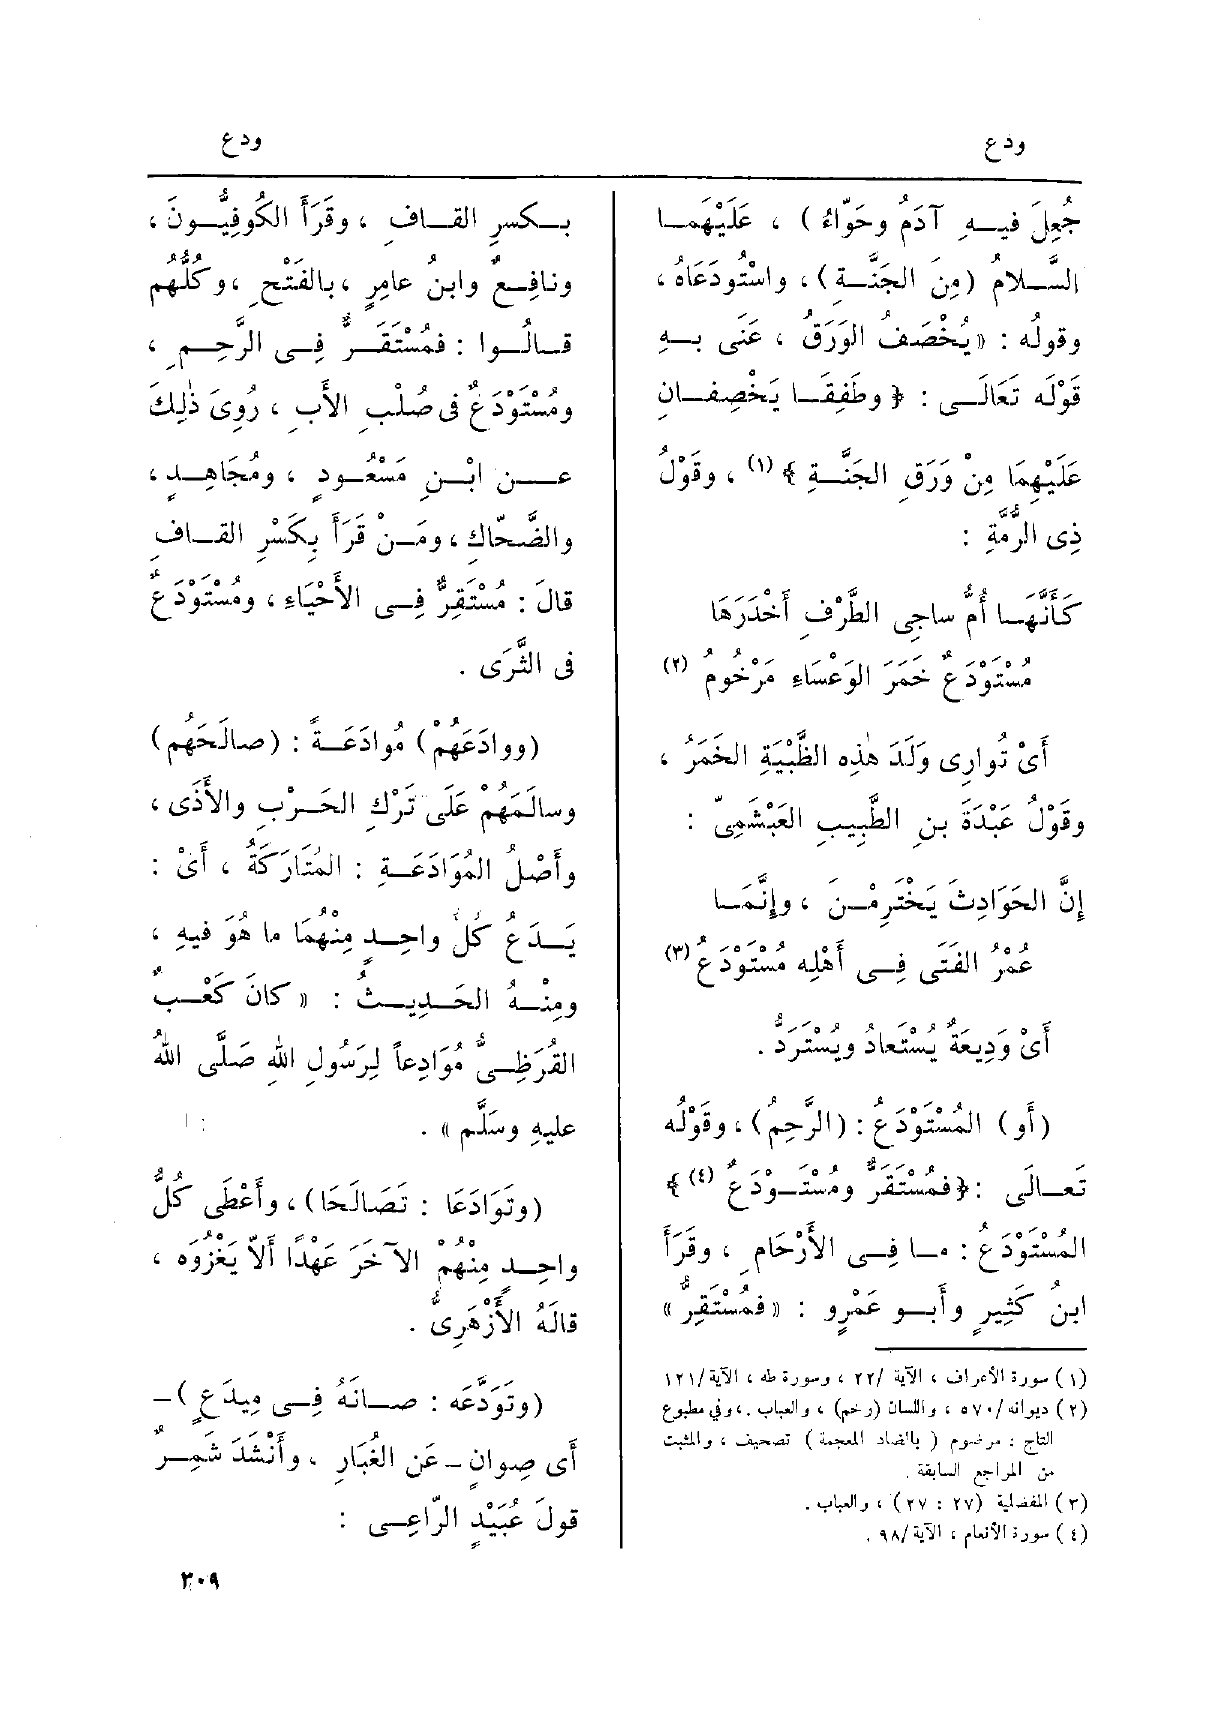 ودع
ودع
جُعِلَ فيــهِ آدَمُ وحَوَّاءُ) ، عَلَيْهِمَــا
السَّــلامُ (مِنَ الجَنَّــةِ) ، واسْتُودَعَاهُ ،
وقولُه : « يُخْصَفُ الوَرَقُ ، عَنَى بــهِ
قَوْلَه تَعَالَــى : ﴿ وطَفِقَــا يَخْصِفــانِ
عَلَيْهِمَا مِنْ وَرَقِ الجَنَّــةِ ﴾ (١) ، وقَوْلُ
ذِى الرُّمَّةِ :
كَأَنَّهَــا أُمُّ ساجِى الطَّرْفِ أَخْدَرَهَا
مُسْتَوْدَعٌ خَمَرَ الوَعْسَاءِ مَرْخُومُ (٢)
أَىْ تُوارِى وَلَدَ هٰذِه الظَّبْيَةِ الخَمَرُ ،
وقَوْلُ عَبْدَةَ بنِ الطَّبِيبِ العَبْشَمِىّ :
إِنَّ الحَوَادِثَ يَخْتَرِمْــنَ ، وإِنَّمَــا
عُمْرُ الفَتَى فِــى أَهْلِه مُسْتَوْدَعُ (٣)
أَىْ وَدِيعَةٌ يُسْتَعادُ ويُسْتَرَدُّ .
(أَو) المُسْتَوْدَعُ : (الرَّحِمُ) ، وقَوْلُه
تَعَــالَى : ﴿ فمُسْتَقَرٌّ ومُسْتَــوْدَعٌ (٤) ﴾
المُسْتَوْدَعُ : مــا فِــى الأَرْحَامِ ، وقَرَأَ
ابنُ كَثِيرٍ وأَبــو عَمْرٍو : « فمُسْتَقِرٌّ »
(١) سورة الأعراف ، الآية /٢٢ ، وسورة طه ، الآية/١٢١
(٢) ديوانه/٥٧٠ ، واللسان (رخم) ، والعباب . ، وفي مطبوع
التاج : مرضوم ( بالضاد المعجمة ) تصحيف ، والمثبت
من المراجع السابقة .
(٣) المفضلية (٢٧ : ٢٧) ، والعباب .
(٤) سورة الأنعام ، الآية/٩٨ .
بــكسرِ القــافِ ، وقَرَأَ الكُوفِيُّــونَ ،
ونافِــعٌ وابنُ عامِرٍ ، بالفَتْحِ ، وكلُّهُم
قــالُــوا : فمُسْتَقَــرٌّ فِــى الرَّحِــمِ ،
ومُسْتَوْدَعٌ فى صُلْبِ الأَبِ ، رُوِىَ ذٰلِكَ
عَــنِ ابْــنِ مَسْعُــودٍ ، ومُجَاهِــدٍ ،
والضَّحّاكِ ، ومَــنْ قَرَأَ بِكَسْرِ القــافِ
قالَ : مُسْتَقِرٌّ فِــى الأَحْيَاءِ ، ومُسْتَوْدَعٌ
فى الثَّرَى .
(ووادَعَهُمْ) مُوادَعَــةً : (صالَحَهُم)
وسالَمَهُمْ عَلَى تَرْكِ الحَــرْبِ والأَذَى ،
وأَصْلُ المُوَادَعَــةِ : المُتَارَكَةُ ، أَىْ :
يَــدَعُ كلُّ واحِــدٍ مِنْهُمَا ما هُوَ فيهِ ،
ومِنْــهُ الحَــدِيــثُ : « كانَ كَعْــبٌ
القُرَظِــىُّ مُوَادِعاً لِرَسُولِ اللهِ صَلَّى اللهُ
عليهِ وسَلَّم » .
(وتَوَادَعَا : تَصَالَحَا) ، وأَعْطَى كُلُّ
واحِــدٍ مِنْهُمْ الآخَرَ عَهْدًا أَلاَّ يَغْزُوَه ،
قالَهُ الأَزْهَرِىُّ .
(وتَوَدَّعَه : صــانَهُ فِــى مِيدَعٍ) –
أَى صِوانٍ – عَنِ الغُبَارِ ، وأَنْشَدَ شَمِــرٌ
قولَ عُبَيْدٍ الرّاعِــى :
٣٠٩